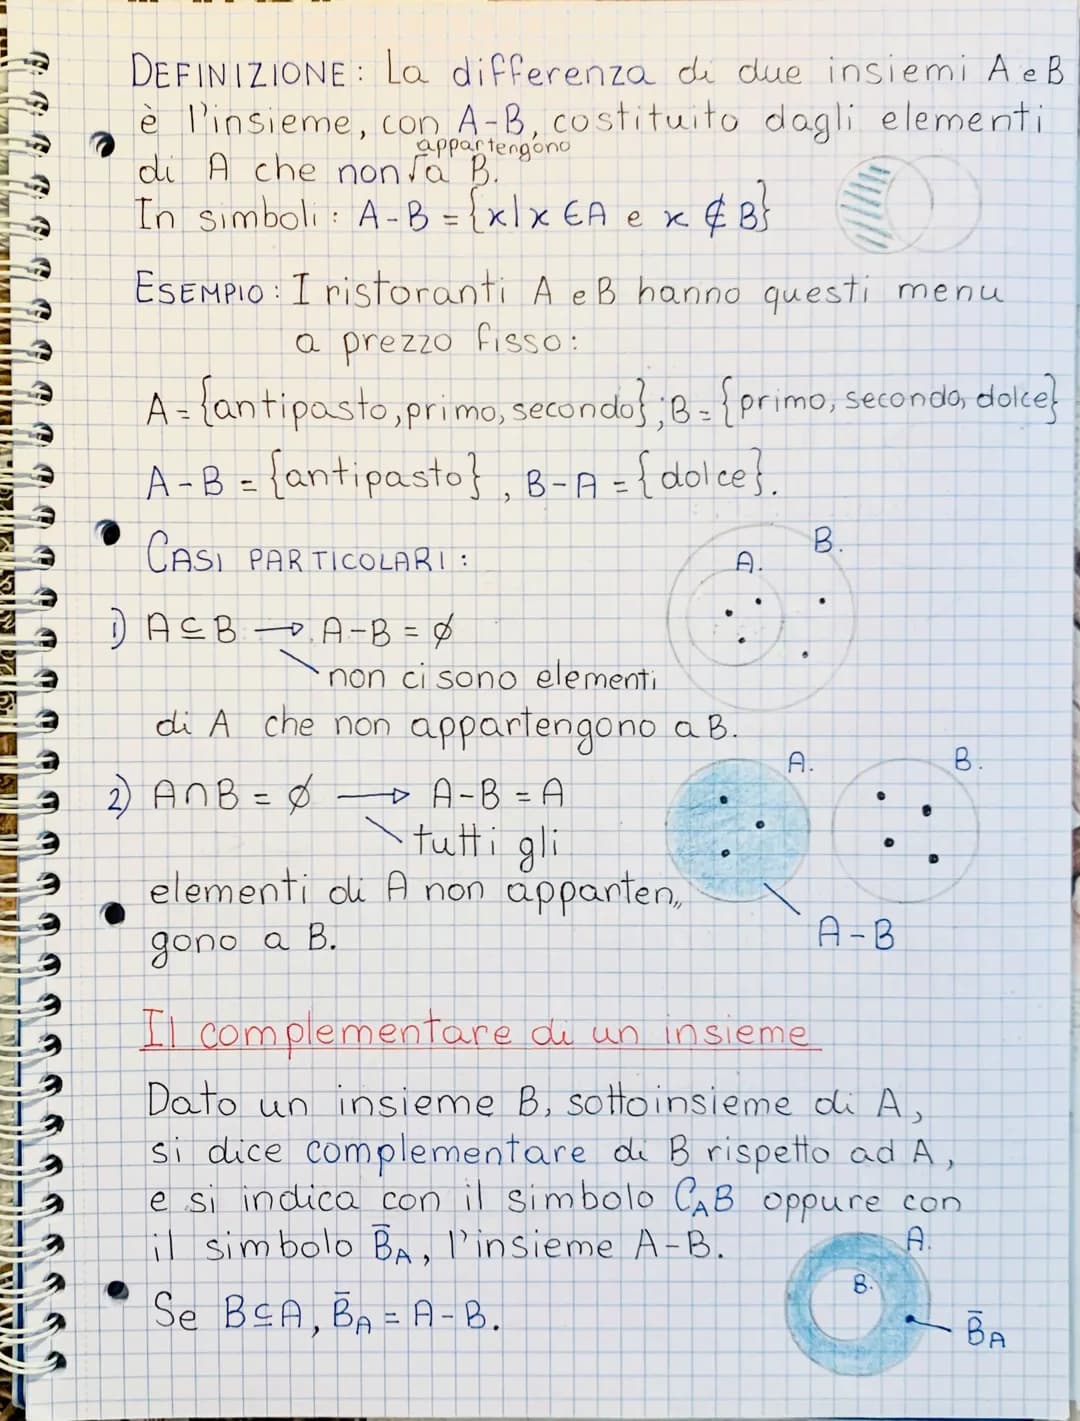 DEFINIZIONE: La differenza di due insiemi A e B
è l'insieme, con A-B, costituito dagli elementi
di A che non appartengono a B.
In simboli: A-B = {x|x ∈ A e x ∉ B}
ESEMPIO: I ristoranti A e B hanno questi menu
a prezzo fisso:
A = {antipasto, primo, secondo}; B = {primo, secondo, dolce}
A-B = {antipasto}, B-A = {dolce}.
CASI PARTICOLARI:
A. B.
1) A ⊆ B → A-B = ∅
non ci sono elementi
di A che non appartengono a B.
A. B.
2) A ∩ B = ∅ → A-B = A
tutti gli
elementi di A non apparten„
gono a B.
A-B
Il complementare di un insieme
Dato un insieme B, sottoinsieme di A,
si dice complementare di B rispetto ad A,
e si indica con il simbolo C_A B oppure con
il simbolo B̄_A, l'insieme A-B.
A.
B.
Se B ⊆ A, B̄_A = A-B.
B̄_A